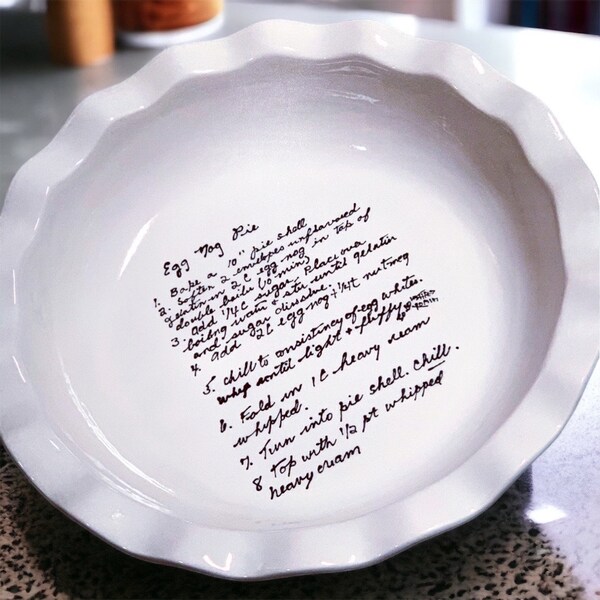 Egg Nog Pie
1. Bake a 10" pie shell
2. Soften 2 envelopes unflavored
gelatin in 2 C egg nog in top of
double boiler (10 min)
3. add 1/4 C sugar. Place over
boiling water & stir until gelatin
and sugar dissolve.
4. add 2C egg nog + 1/4 t nutmeg
5. chill to consistency of egg whites.
whip until light & fluffy
6. Fold in 1 C heavy cream
whipped.
7. Turn into pie shell. Chill.
8 Top with 1/2 pt whipped
heavy cream